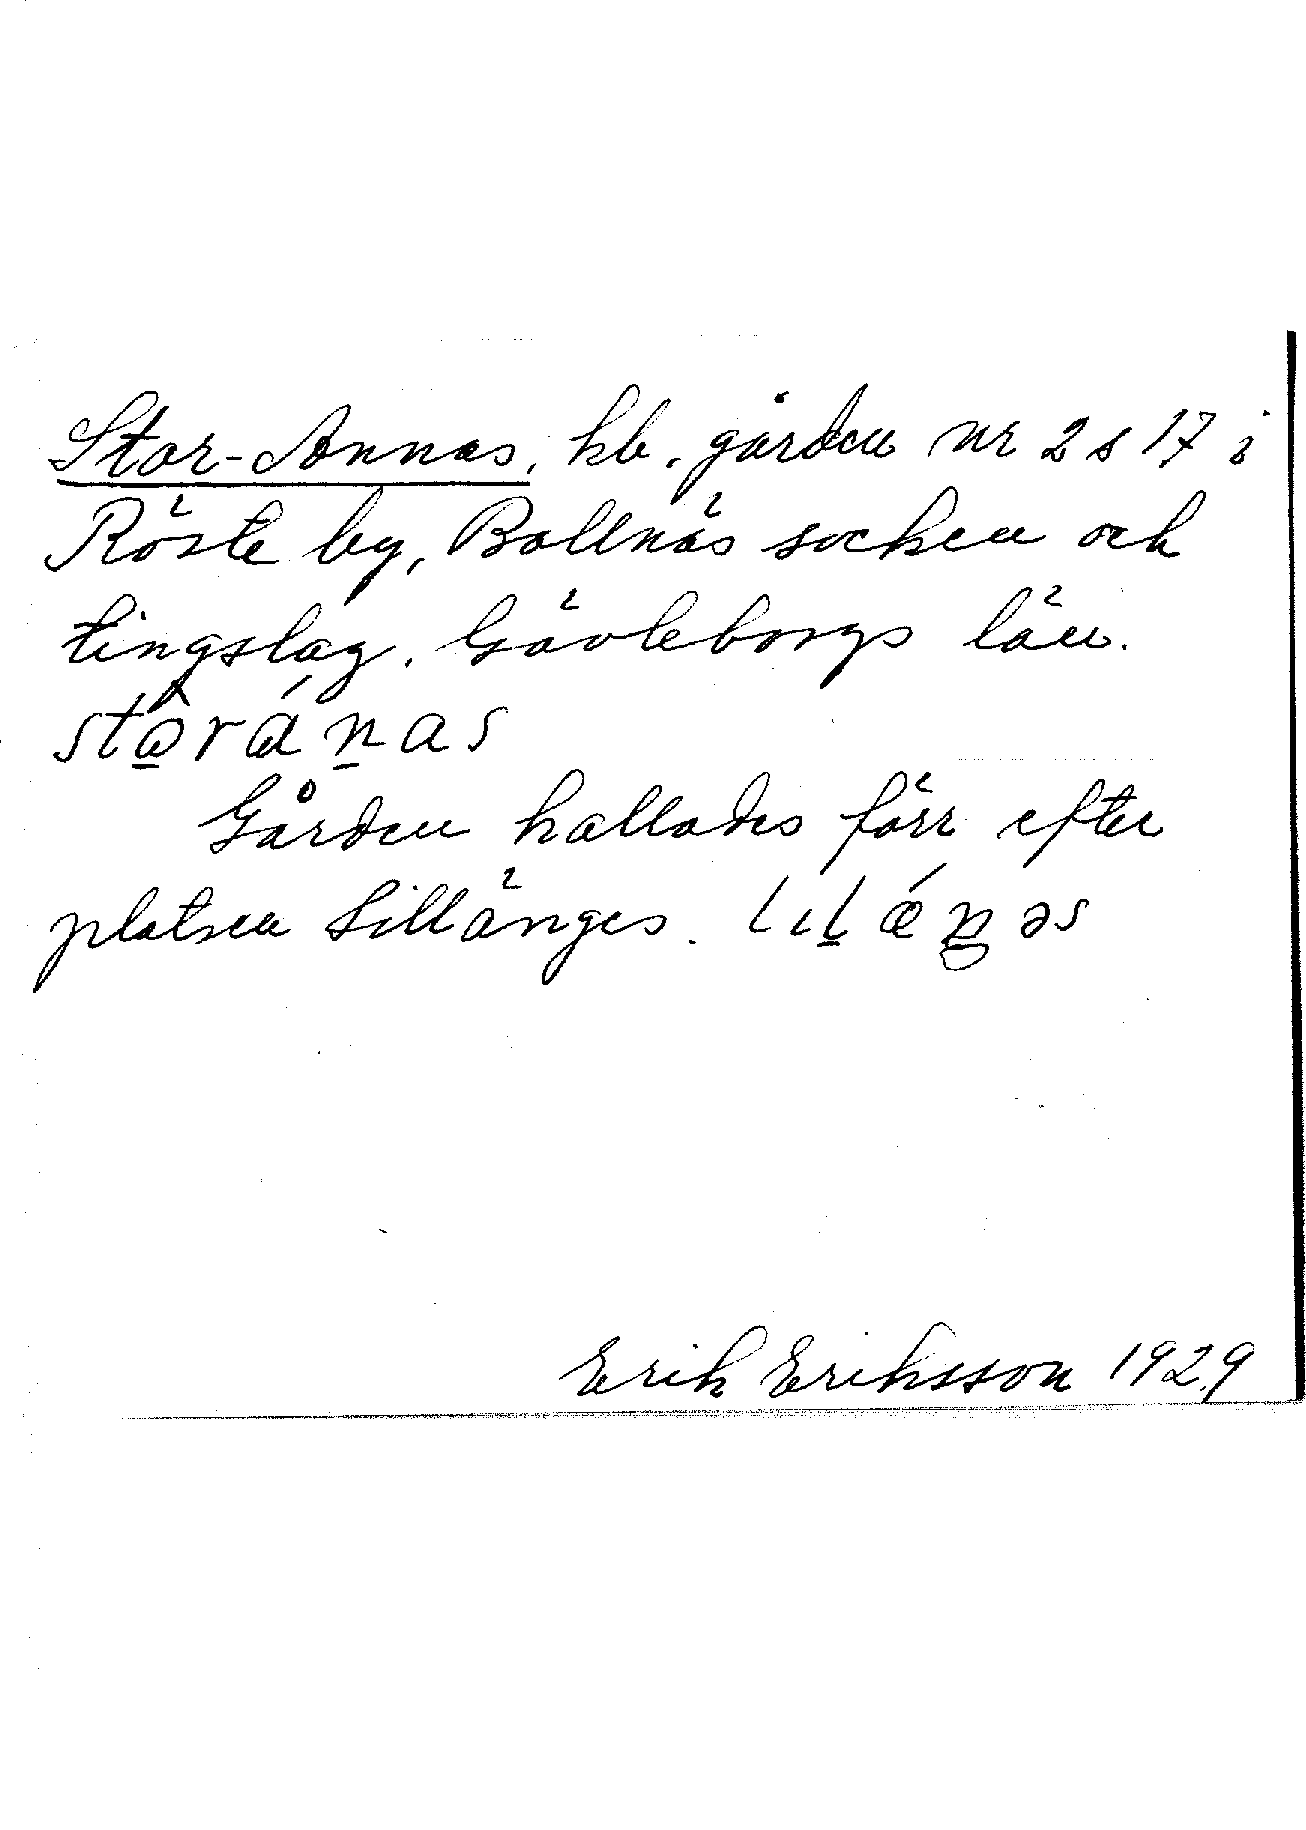 Stor-Annas, hb. gården nr 2 s 17 i
Röste by, Bollnäs socken och
tingslag. Gävleborgs län.
stω̲̂rάn̲as
Gården kallades förr efter
platsen Lillänges. lɩl̲ǽŋ̲əs
Erik Eriksson 1929